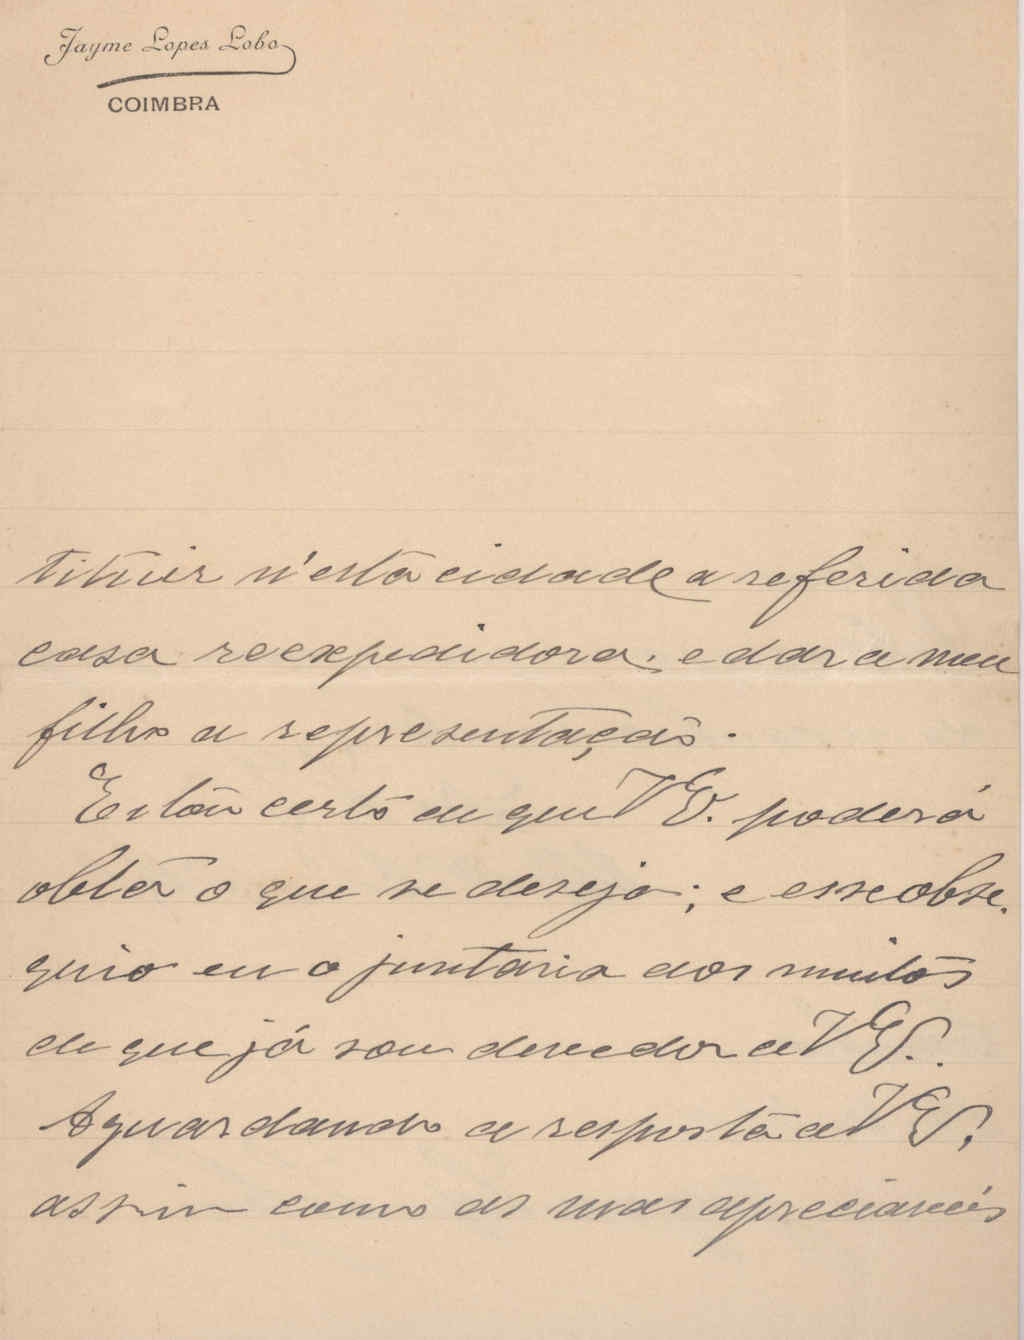 Jayme Lopes Lobo
COIMBRA
tituir n'esta cidade a referida
casa reexpedidora, e dar a meu
filho a representação.
Estou certo de que V Ex. poderá
obter o que se deseja; e esse obse-
quio eu o juntaria aos muitos
de que já sou devedor a V Ex.
Aguardando a resposta de V Ex.
assim como as suas apreciaveis